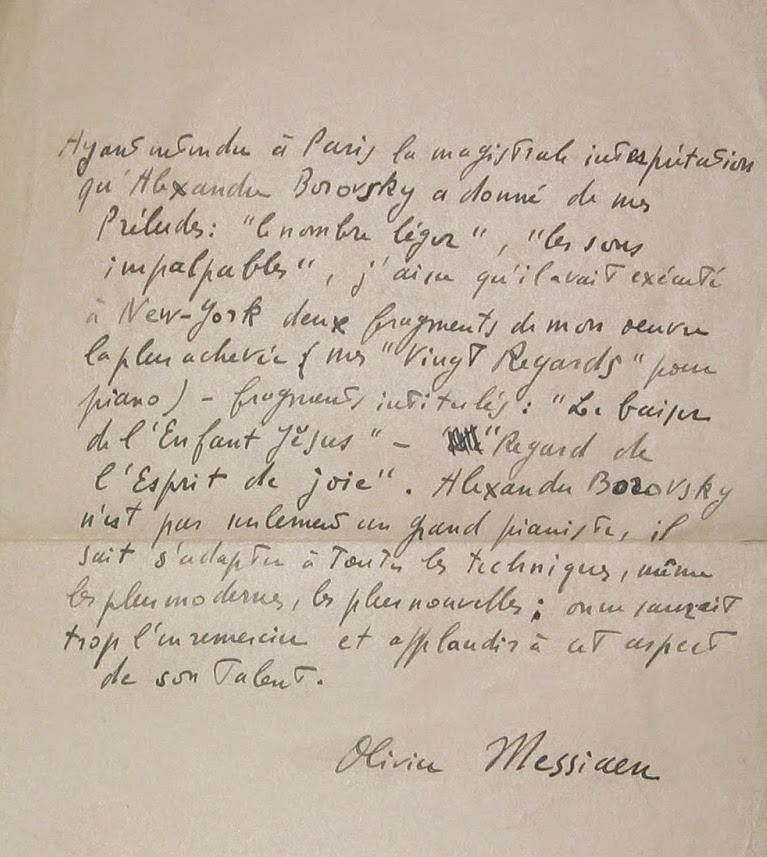 Ayant entendu à Paris la magistrale interprétation
qu'Alexandre Borovsky a donné de mes
Préludes : "le nombre léger", "les sons
impalpables", j'ai su qu'il avait exécuté
à New-York deux fragments de mon oeuvre
la plus achevée (mes "Vingt Regards" pour
piano) - fragments intitulés : "Le baiser
de l'Enfant Jésus" - "Regard de
l'Esprit de joie". Alexandre Borovsky
n'est pas seulement un grand pianiste, il
sait s'adapter à toutes les techniques, même
les plus modernes, les plus nouvelles ; on ne saurait
trop l'en remercier et applaudir à cet aspect
de son talent.
Olivier Messiaen